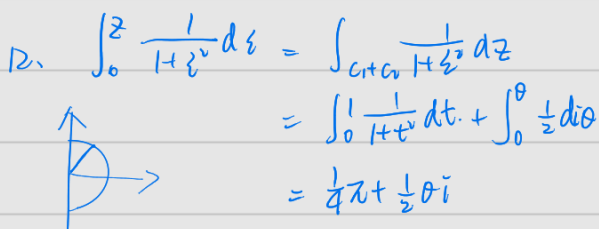 12、 ∫₀^z 1/(1+ξ²) dξ = ∫_{C₁+C₂} 1/(1+ξ²) dz
= ∫₀¹ 1/(1+t²) dt. + ∫₀^θ 1/2 diθ
= 1/4 π + 1/2 θi